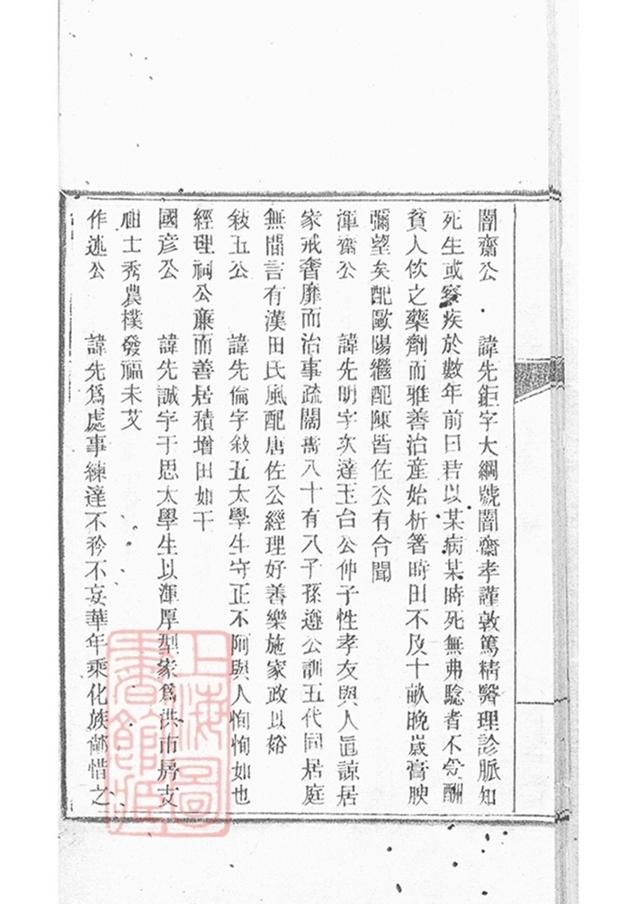 闇齋公　諱先鉅字大綱號闇齋孝謹敦篤精醫理診脈知
死生或察疾於數年前曰君以某病某時死無弗驗者不受酬
貧人饮之藥劑而雅善治產始析箸時田不及十畝晚歲膏腴
彌望矣配歐陽繼配陳皆佐公有合聞
渾齋公　諱先明字次達玉台公仲子性孝友與人直諒居
家戒奢靡而治事疏闊壽八十有八子孫遵公訓五代同居庭
無間言有漢田氏風配唐佐公經理好善樂施家政以裕
敍五公　諱先倫字敍五太學生守正不阿與人恂恂如也
經理祠公廉而善居積增田如干
國彥公　諱先誠字于思太學生以渾厚型家爲洪市房支
祖士秀農樸發福未艾
作述公　諱先爲處事練達不矜不妄華年乘化族鄰惜之
上海圖書館藏